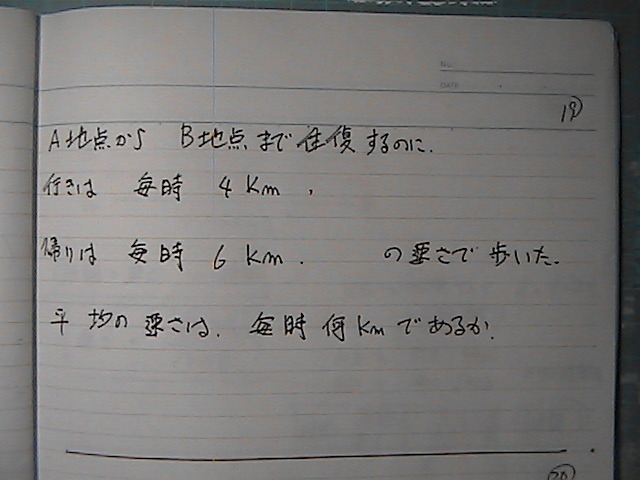 No.
DATE
⑲
A地点から B地点まで往復するのに.
行きは 毎時 4 Km ,
帰りは 毎時 6 Km . の速さで 歩いた.
平均の 速さは. 毎時 何Kmであるか.
⑳